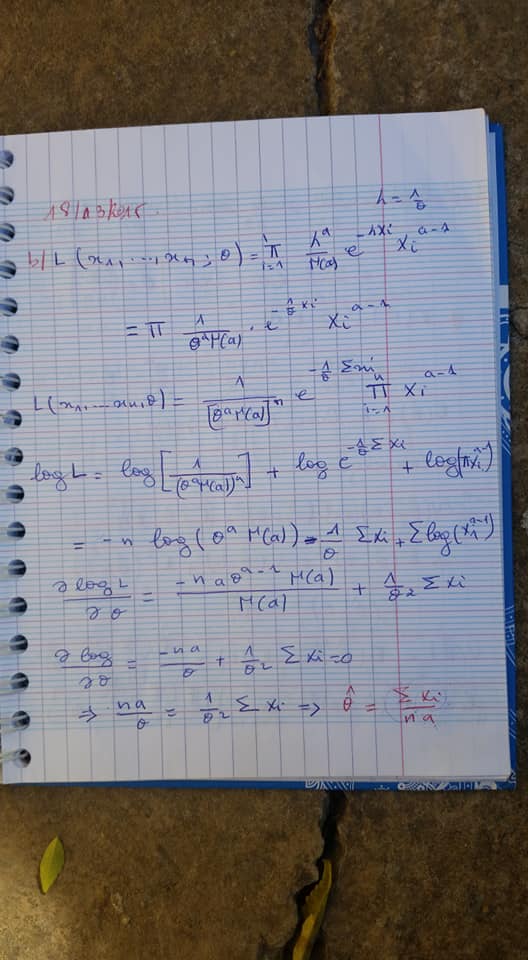 λ = 1/θ
b/ L(x1, ..., xn; θ) = π i=1 λ^a/Γ(a) e^-λxi xi^a-1
= π 1/θ^aΓ(a) · e^-1/θ xi xi^a-1
L(x1, ... xn, θ) = 1/[θ^aΓ(a)]^n e^-1/θ Σxi π i=1 n xi^a-1
log L = log[1/(θ^aΓ(a))^n] + log e^-1/θ Σ xi + log(πxi^a-1)
= -n log(θ^a Γ(a)) - 1/θ Σxi + Σlog(xi^a-1)
∂ log L/∂θ = -n a θ^a-1 Γ(a)/Γ(a) + 1/θ2 Σ xi
∂ log/∂θ = -na/θ + 1/θ2 Σ xi = 0
⇒ na/θ = 1/θ2 Σ xi ⇒ θ̂ = Σ xi/na